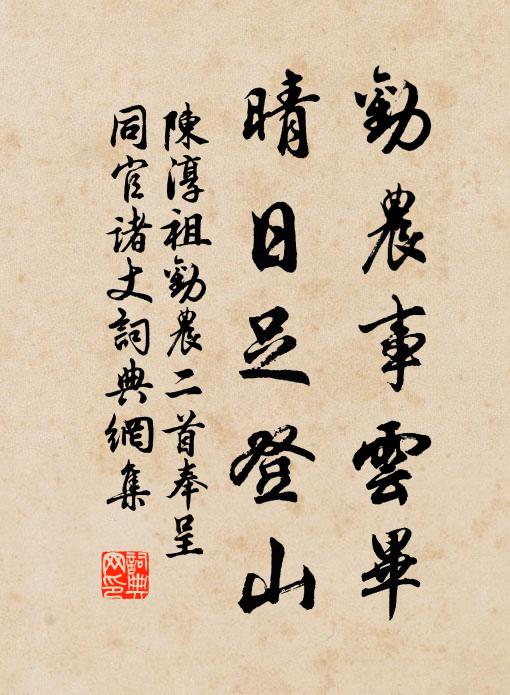 勸農事雲畢
晴日足登山
陳淳祖勸農二首奉呈
同官諸丈詞典網集
詞典網印